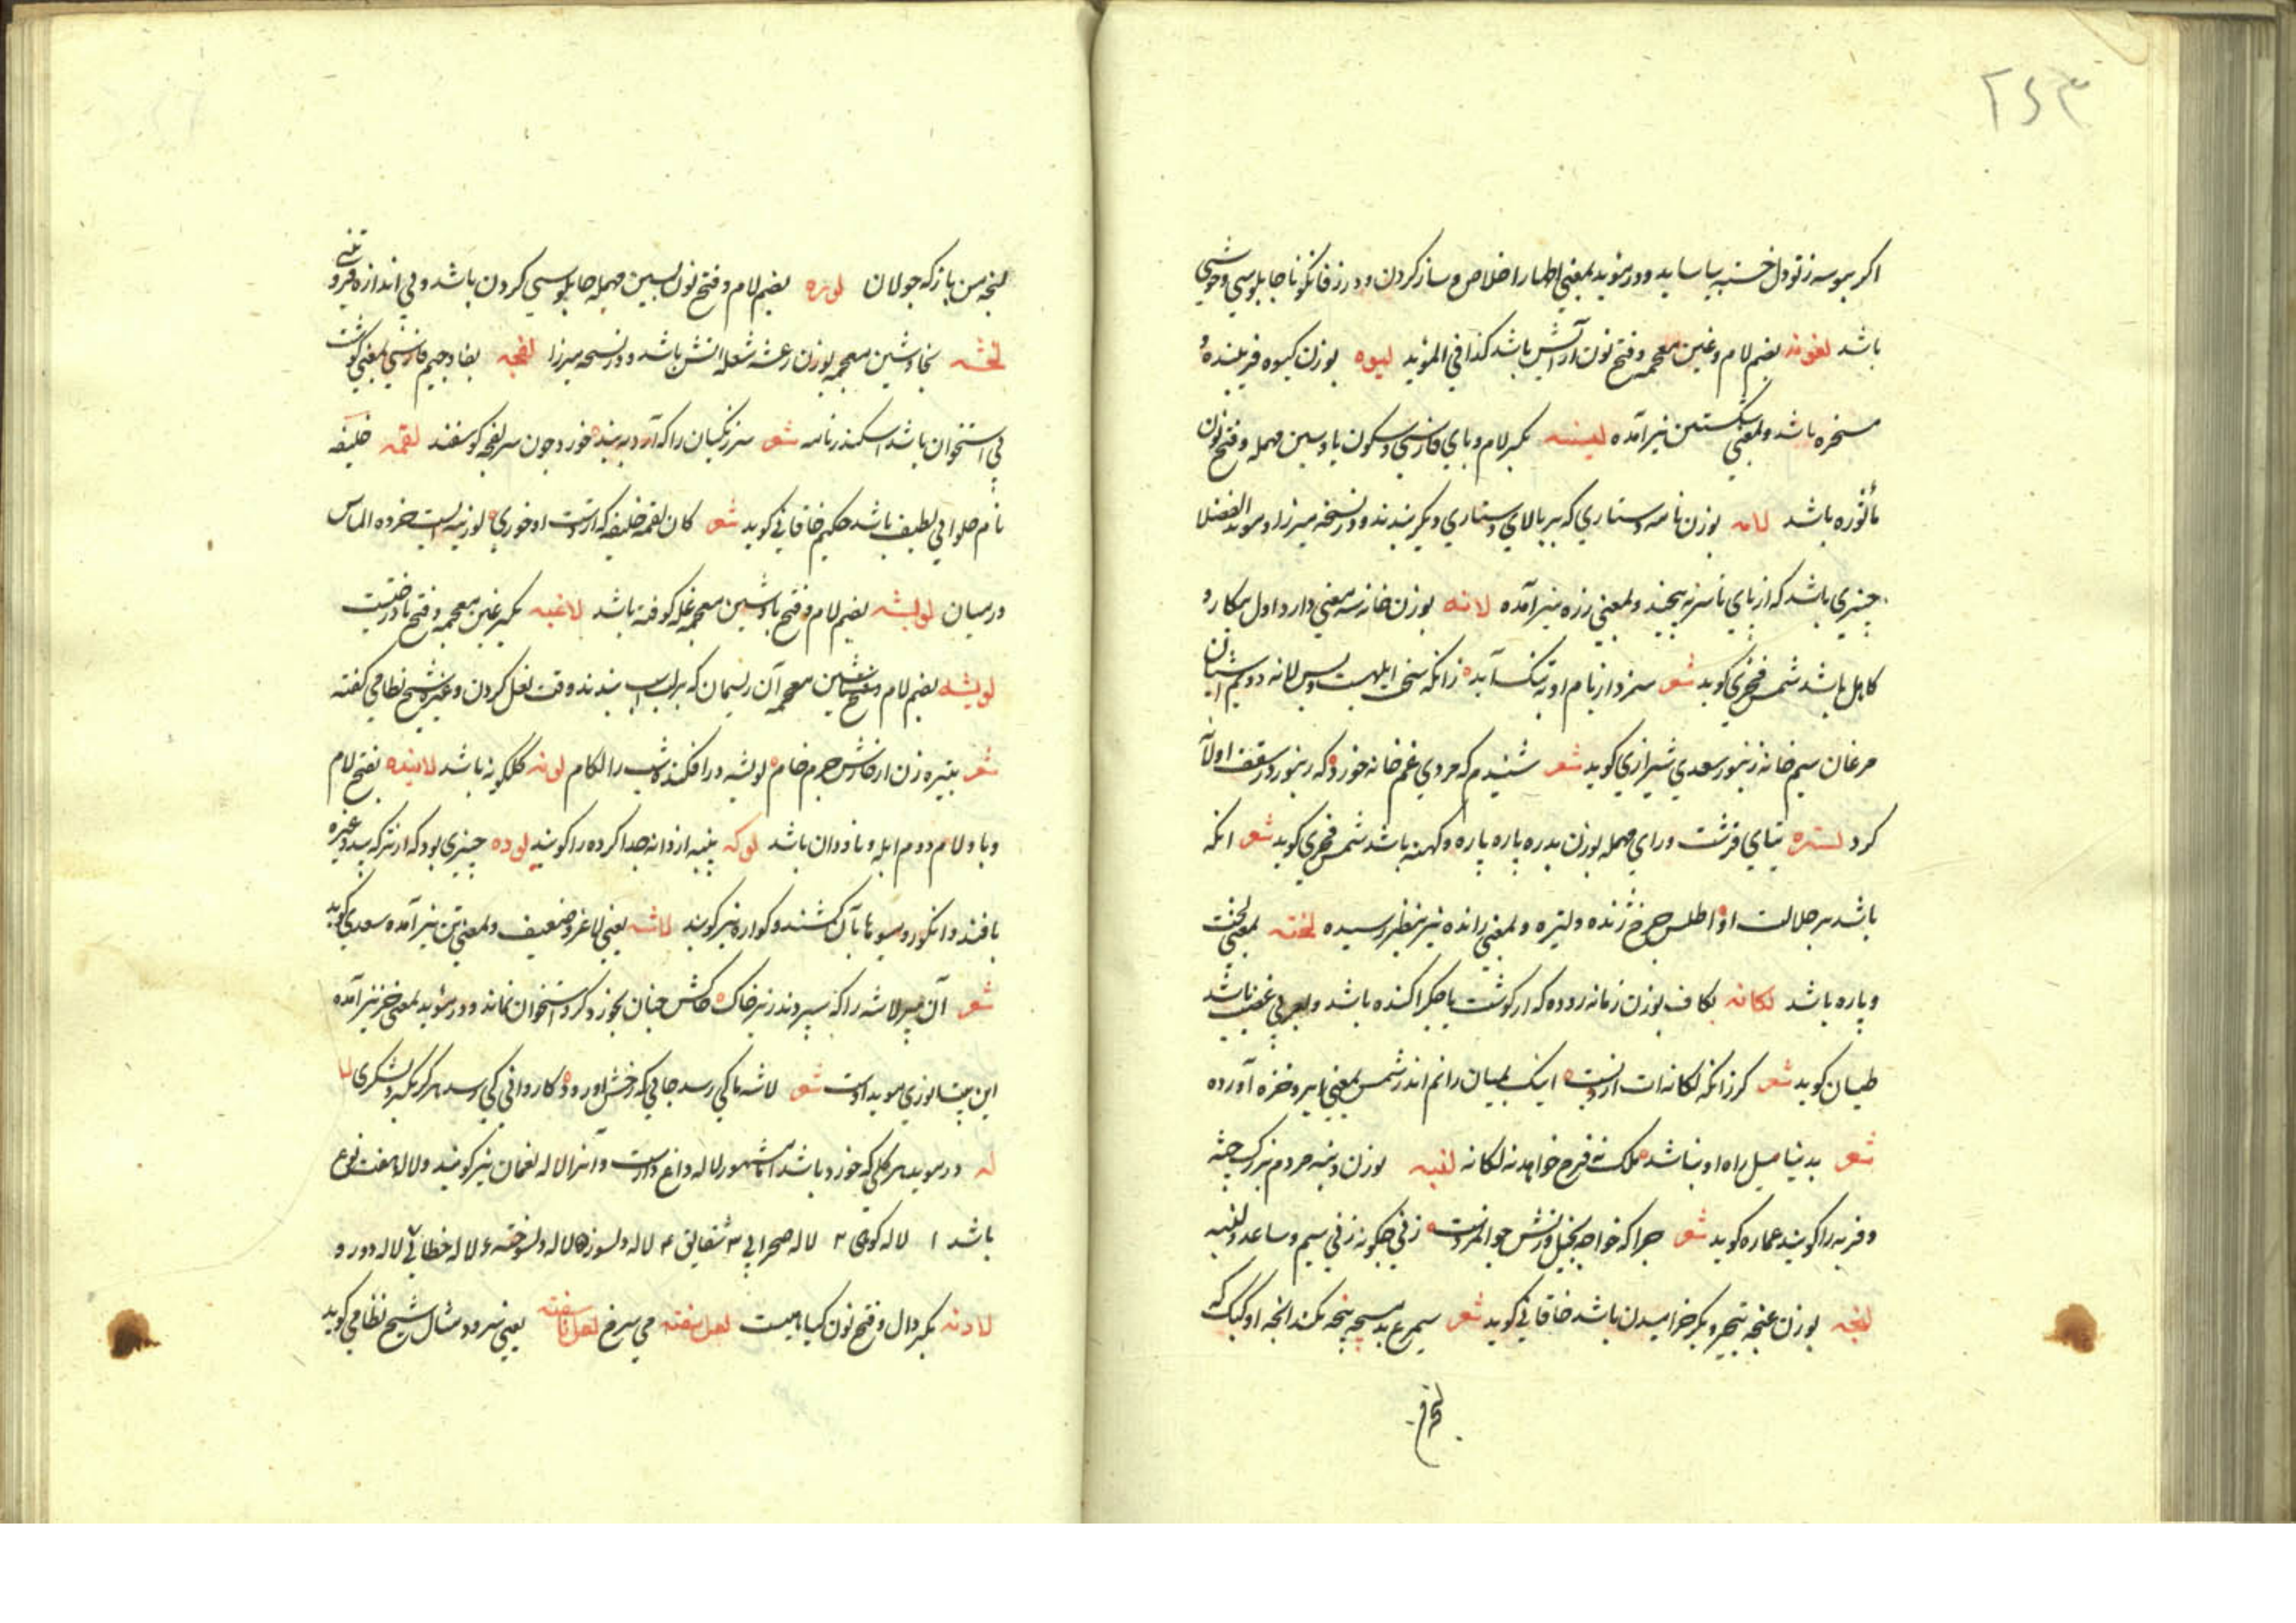 ۲۶۳
اکر ببوسه ز تو دل خسته بیاساید و در موید بمعنی اظهار اخلاص و ساز کردن و در زفانکویا چابلوسی و خوشی
باشد لغونه بضم لام و غین معجمه و فتح نون آرایش باشد کذا فی الموید لیوه بوزن کیوه فریبنده و
مسخره باشد و بمعنی نیز آمده بکسر لام و بای فارسی و سکون یا و سین مهمله و فتح نون
ماثوره باشد لامه بوزن نامه دستاری که بر بالای دستاری دیکر بندند و در نسخه میرزا و موید الفضلا
چیزی باشد که از پای تا سر به پیچند و بمعنی زره نیز آمده لانه بوزن خانه سه معنی دارد اول بیکار و
کاهل باشد شمس فخری کوید شعر سزد از نام او به تنک آید زانکه سخت ابلهست و بس لانه دویم آشیان
مرغان سیم خانه زنبور سعدی شیرازی کوید شعر شنیدم که مردی غم خانه خورد که زنبور در سقف او لانه
کرد لتره بتای قرشت و رای مهمله بوزن بدره پاره پاره و کهنه باشد شمس فخری کوید شعر انکه
باشد بر جلالت او اطلس چرخ ژنده و لتره و بمعنی رانده نیز بنظر رسیده لخته بمعنی لخت
و پاره باشد لکانه بکاف بوزن زمانه روده که از کوشت یا جکر آکنده باشد و بعربی عصیب باشد
طیان کوید شعر کر زانکه لکانه ات آرزوست اینک بمیان رانم اندر شمس بمعنی آورده
شعر بدنیا میل راه او نباشد ملک خواهد نه لکانه لنبه بوزن دنبه مردم بزرک جثه
و فربه را کویند عماره کوید شعر چرا که خواجه بخیل و زنش جوانمردست زنی چکونه زنی سیم ساعد و لنبه
لنجه بوزن غنچه تبختر و بکبر خرامیدن باشد خاقانی کوید شعر سیمرغ بدسیجه پنجه نکند لنجه او کبک که
لنجه من باز که جولان لوسه بضم لام و فتح نون بسین مهمله چابلوسی کردن باشد و بی اندازه فروتنی
لخشه بخا و شین معجمه بوزن رعشه شعله آتش باشد و در نسخه میرزا لفجه بفا و جیم فارسی بمعنی کوشت
بی استخوان باشد اسکندرنامه شعر سر زنکیان را که آرد به بند خورد چون سر لفجه کوسفند لقمه خلیفه
نام حلوائی لطیف باشد حکیم خاقانی کوید شعر کان لقمه خلیفه که از دست او خوری لوزینه ایست خرده الماس
در میان لوبشه بضم لام و فتح با و شین معجمه غله کوفته باشد لاغیه بکسر غین معجمه و فتح یا درختیست
لویشه بضم لام و فتح شین معجمه آن ریسمان که بر لب اسب بندند وقت نعل کردن و غیره شیخ نظامی کفته
شعر خام لویشه در افکند شب را لکام لونه کلکونه باشد لانیده بفتح لام
و با و لام دوم ابله و نادان باشد لوکه پنبه از دانه جدا کرده را کویند لوده چیزی بود که از ترکه بید و غیره
بافند و انکور و میوها بآن کشند و کواره نیز کویند لاشه یعنی لاغر و ضعیف و بمعنی تن نیز آمده سعدی کوید
شعر آن پیر لاشه را که سپردند زیر خاک خاکش چنان بخورد کزو استخوان نماند و در موید بمعنی خر نیز آمده
این بیت انوری موید اوست شعر لاشه ما کی رسد جائی که رخش او رود کاروانی کی رسد هرکز بکرد لشکری لا
له و در موید هر کلی که خودرو باشد اما مشهور لاله داغ دارست و آنرا لاله نعمان نیز کویند و لاله هفت نوع
باشد ۱ لاله کوهی ۲ لاله صحرائی ۳ شقایق ۴ لاله دلسوز ۵ لاله دلسوخته ۶ لاله خطائی ۷ لاله دو رو
لادنه بکسر دال و فتح نون کیاهیست لعل سفته می سرخ لعل ناسفته یعنی سرود مثال شیخ نظامی کوید